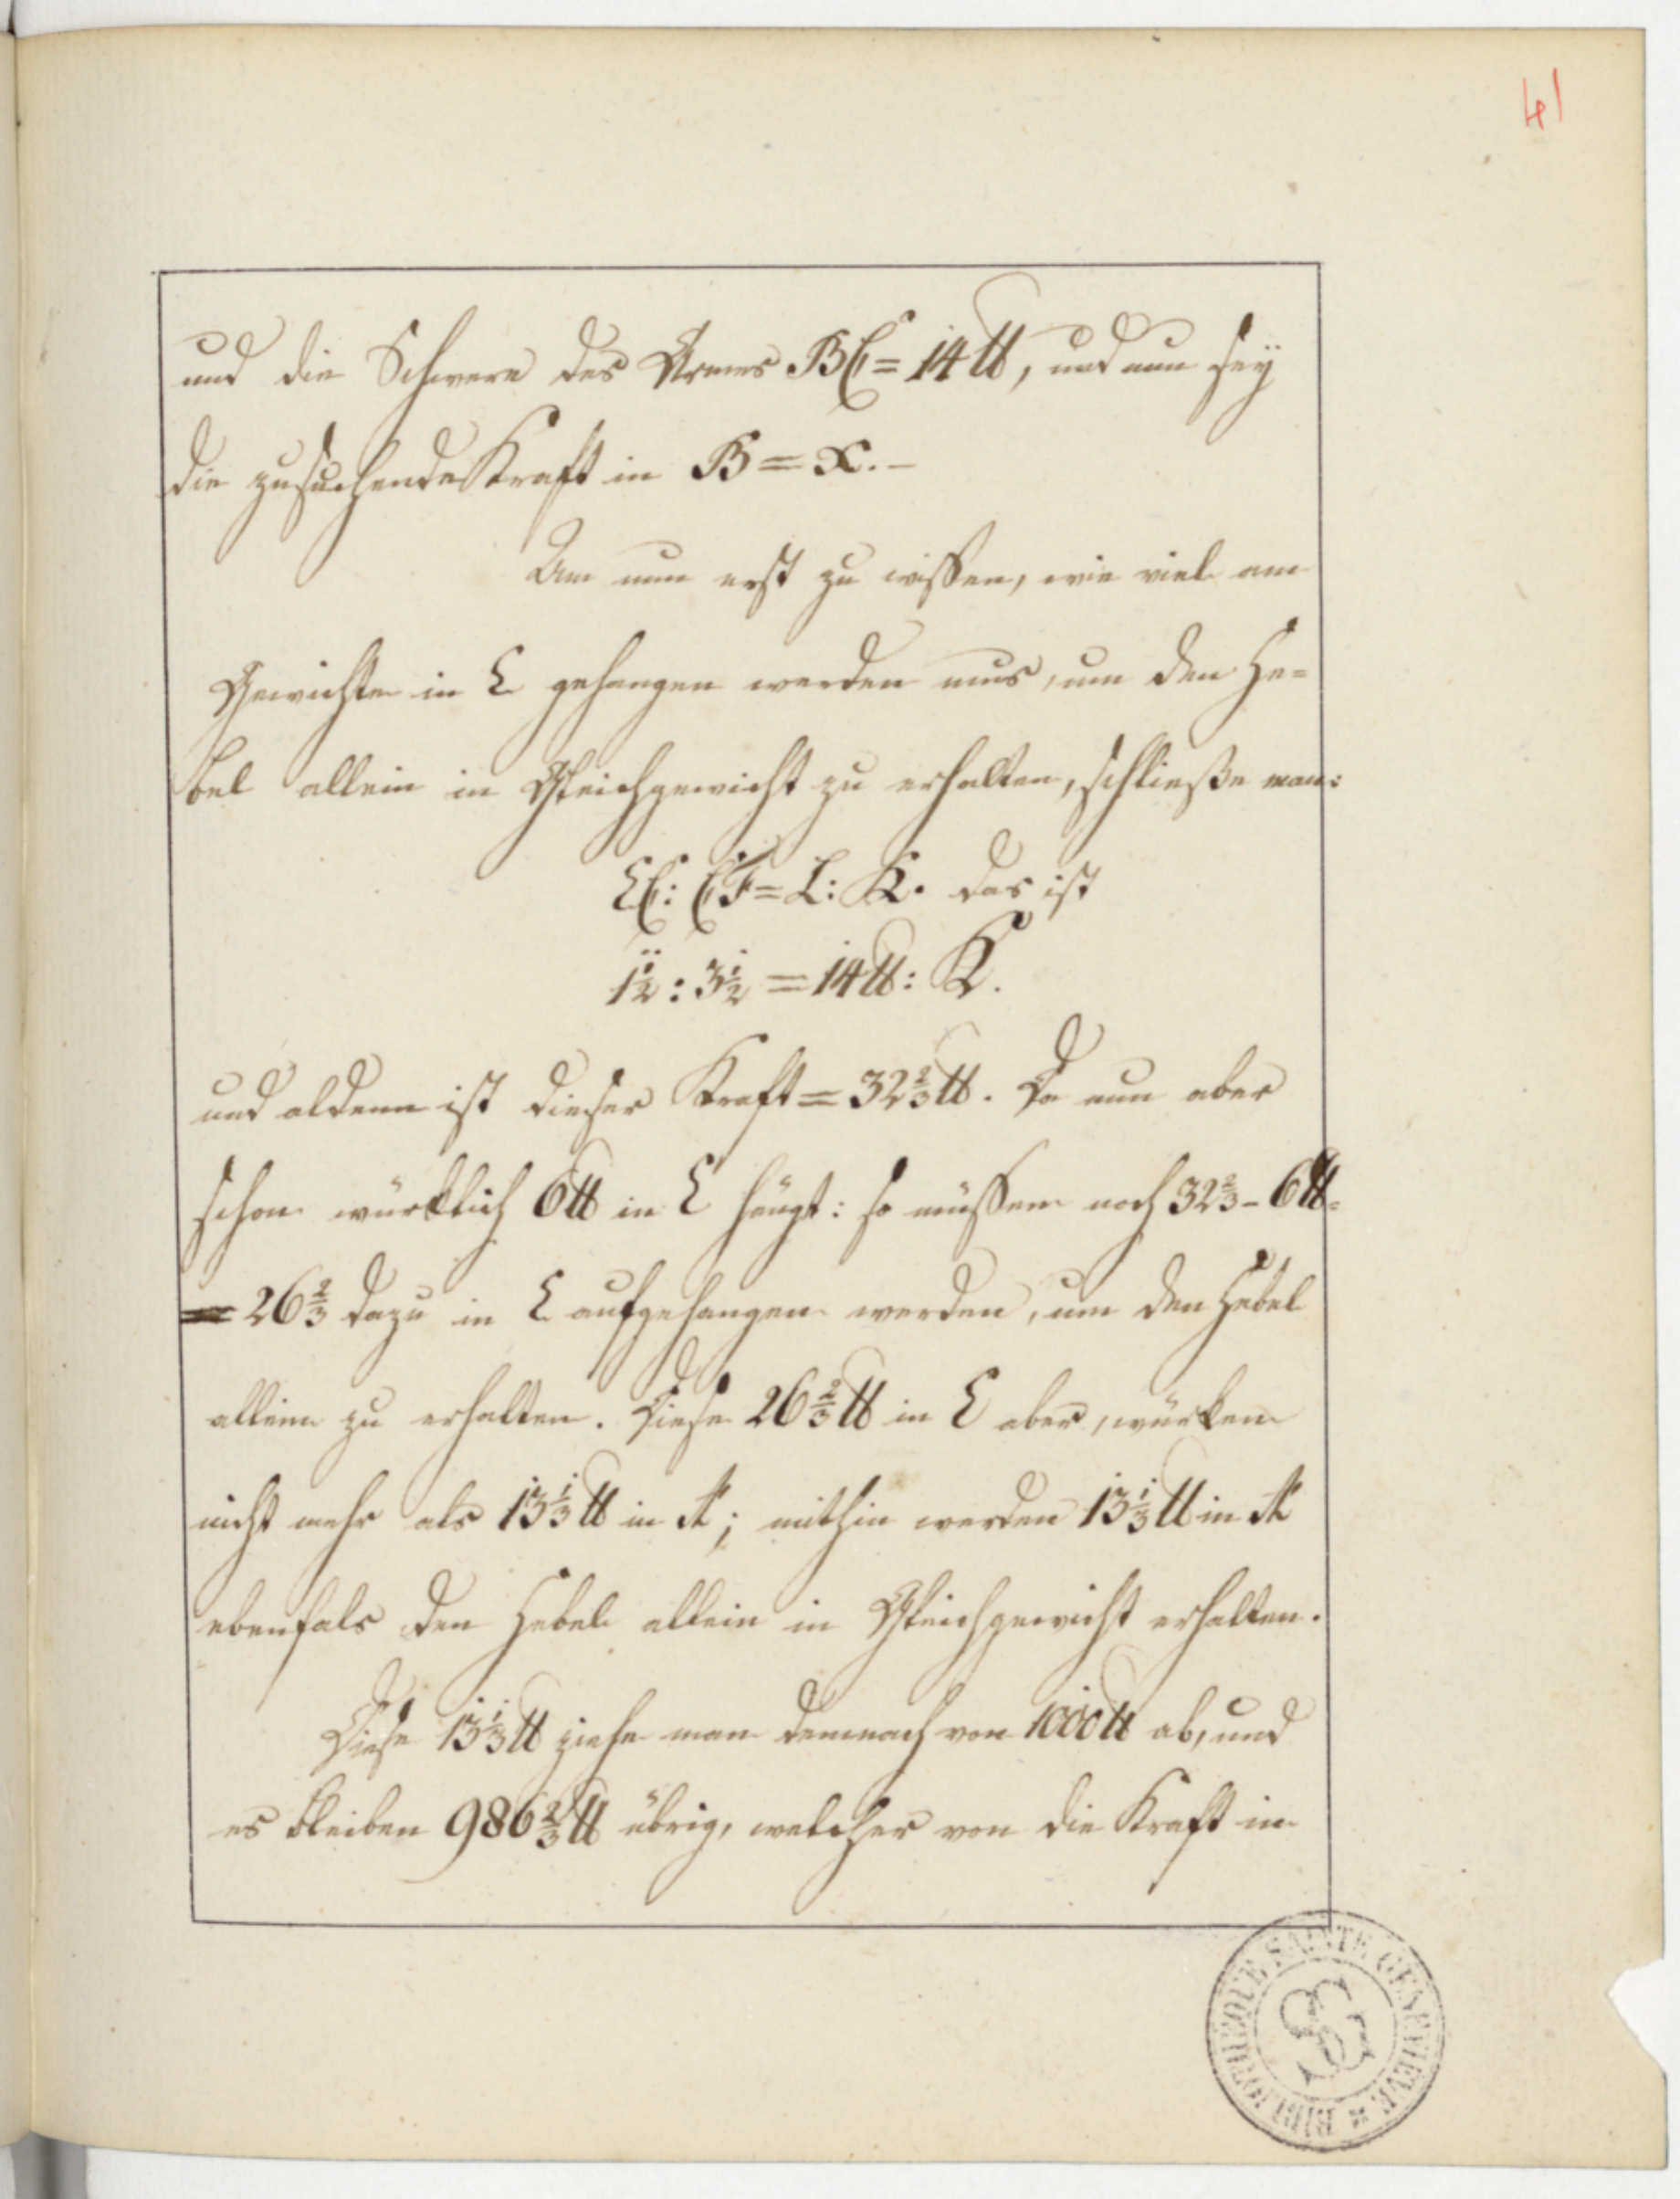 41
und die Schwere des Armes BC = 14 ℔, und nun seÿ
die zusuchende Kraft in B = x. –
Um nun erst zu wissen, wie viel am
Gewichte in E gehangen werden mus, um den He=
bel allein in Gleichgewicht zu erhalten, schließe man:
EC : CF = L : K. das ist
1½ : 3½ = 14 ℔ : K.
und aldenn ist dieser Kraft = 32⅔ ℔. Da nun aber
schon würklich 6 ℔ in E hängt: so müssen noch 32⅔ – 6 ℔ =
= 26⅔ dazu in E aufgehangen werden, um den Hebel
allein zu erhalten. Diese 26⅔ ℔ in E aber, würken
nicht mehr als 13⅓ ℔ in A; mithin werden 13⅓ ℔ in A
ebenfals den Hebel allein in Gleichgewicht erhalten.
Diese 13⅓ ℔ ziehe man demnach von 1000 ℔ ab, und
es bleiben 986⅔ ℔ übrig, welcher von die Kraft in
BIBLIOTHEQUE SAINTE GENEVIEVE
SG